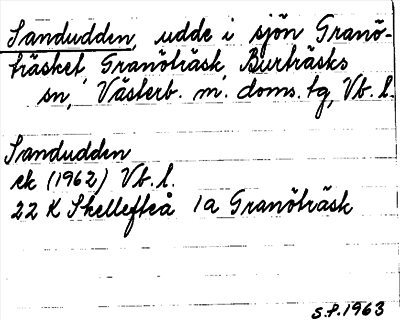 Sandudden, udde i sjön Granö-
träsket, Granöträsk, Burträsks
sn, Västerb. m. doms. tg, Vb. l.
Sandudden
ek (1962) Vb. l.
22 K Skellefteå 1a Granöträsk
S.P. 1963